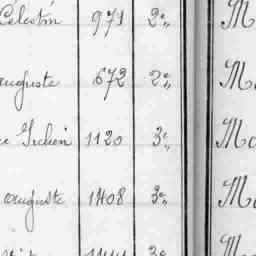 Celestin 971 2e M
auguste 672 2e M
Julien 1120 3e Mo
auguste 1408 3e M
3e